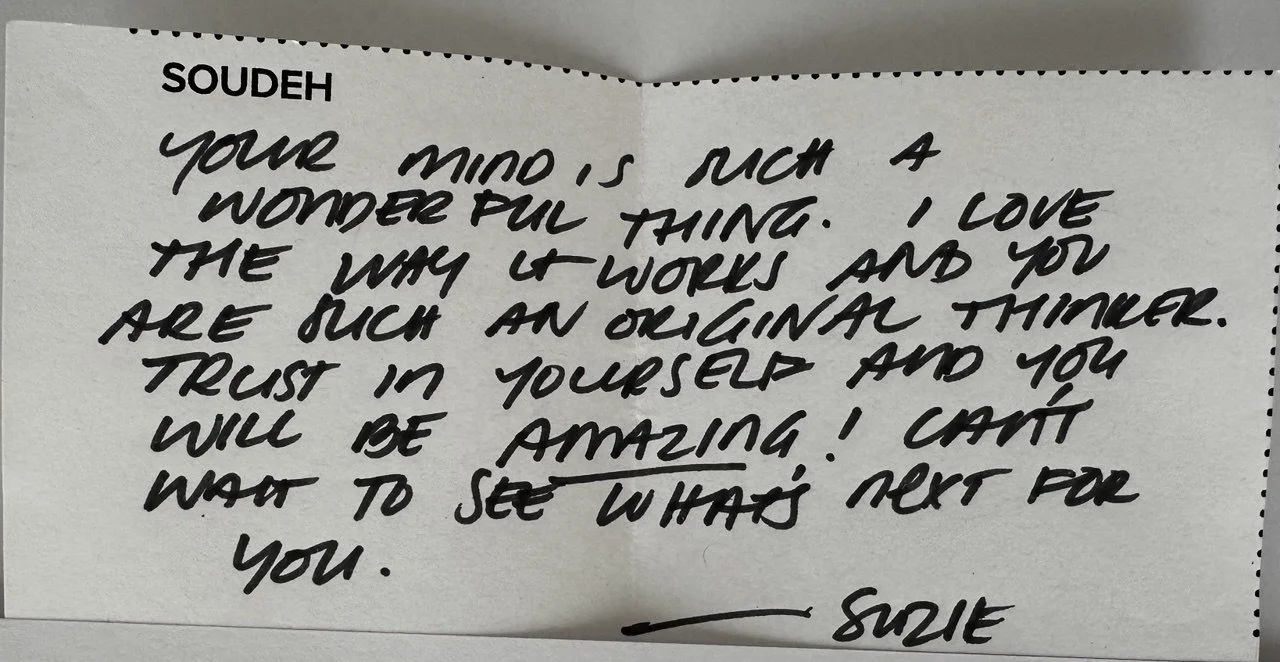 SOUDEH
YOUR MIND IS SUCH A
WONDERFUL THING. I LOVE
THE WAY IT WORKS AND YOU
ARE SUCH AN ORIGINAL THINKER.
TRUST IN YOURSELF AND YOU
WILL BE AMAZING! CAN'T
WAIT TO SEE WHAT'S NEXT FOR
YOU.
— SUZIE